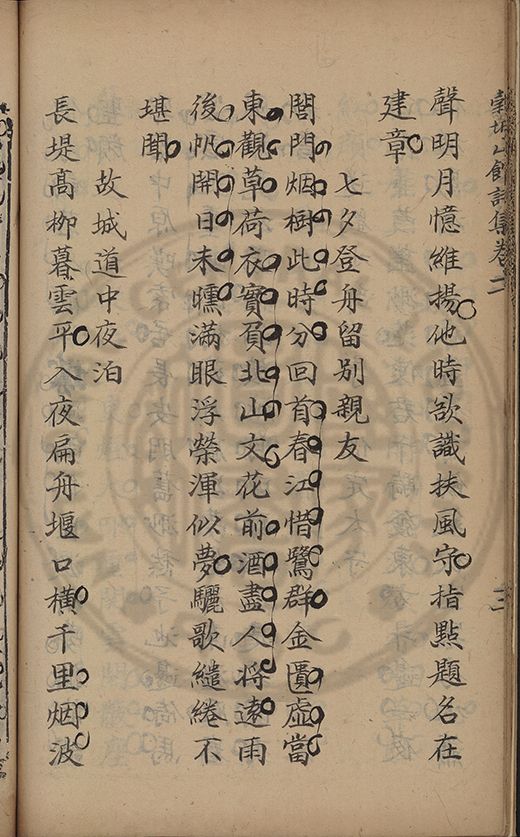 穀城山館詩集卷二 三
聲明月憶維揚他時欲識扶風守指點題名在
建章
七夕登舟留別親友
門烟樹此時分回首春江惜鷺群金匱虛當
東觀草荷衣實負北山文花前酒盡人將遠雨
後帆開日未曛滿眼浮榮渾似夢驪歌繾綣不
堪聞
故城道中夜泊
長堤高柳暮雲平入夜扁舟堰口橫千里烟波